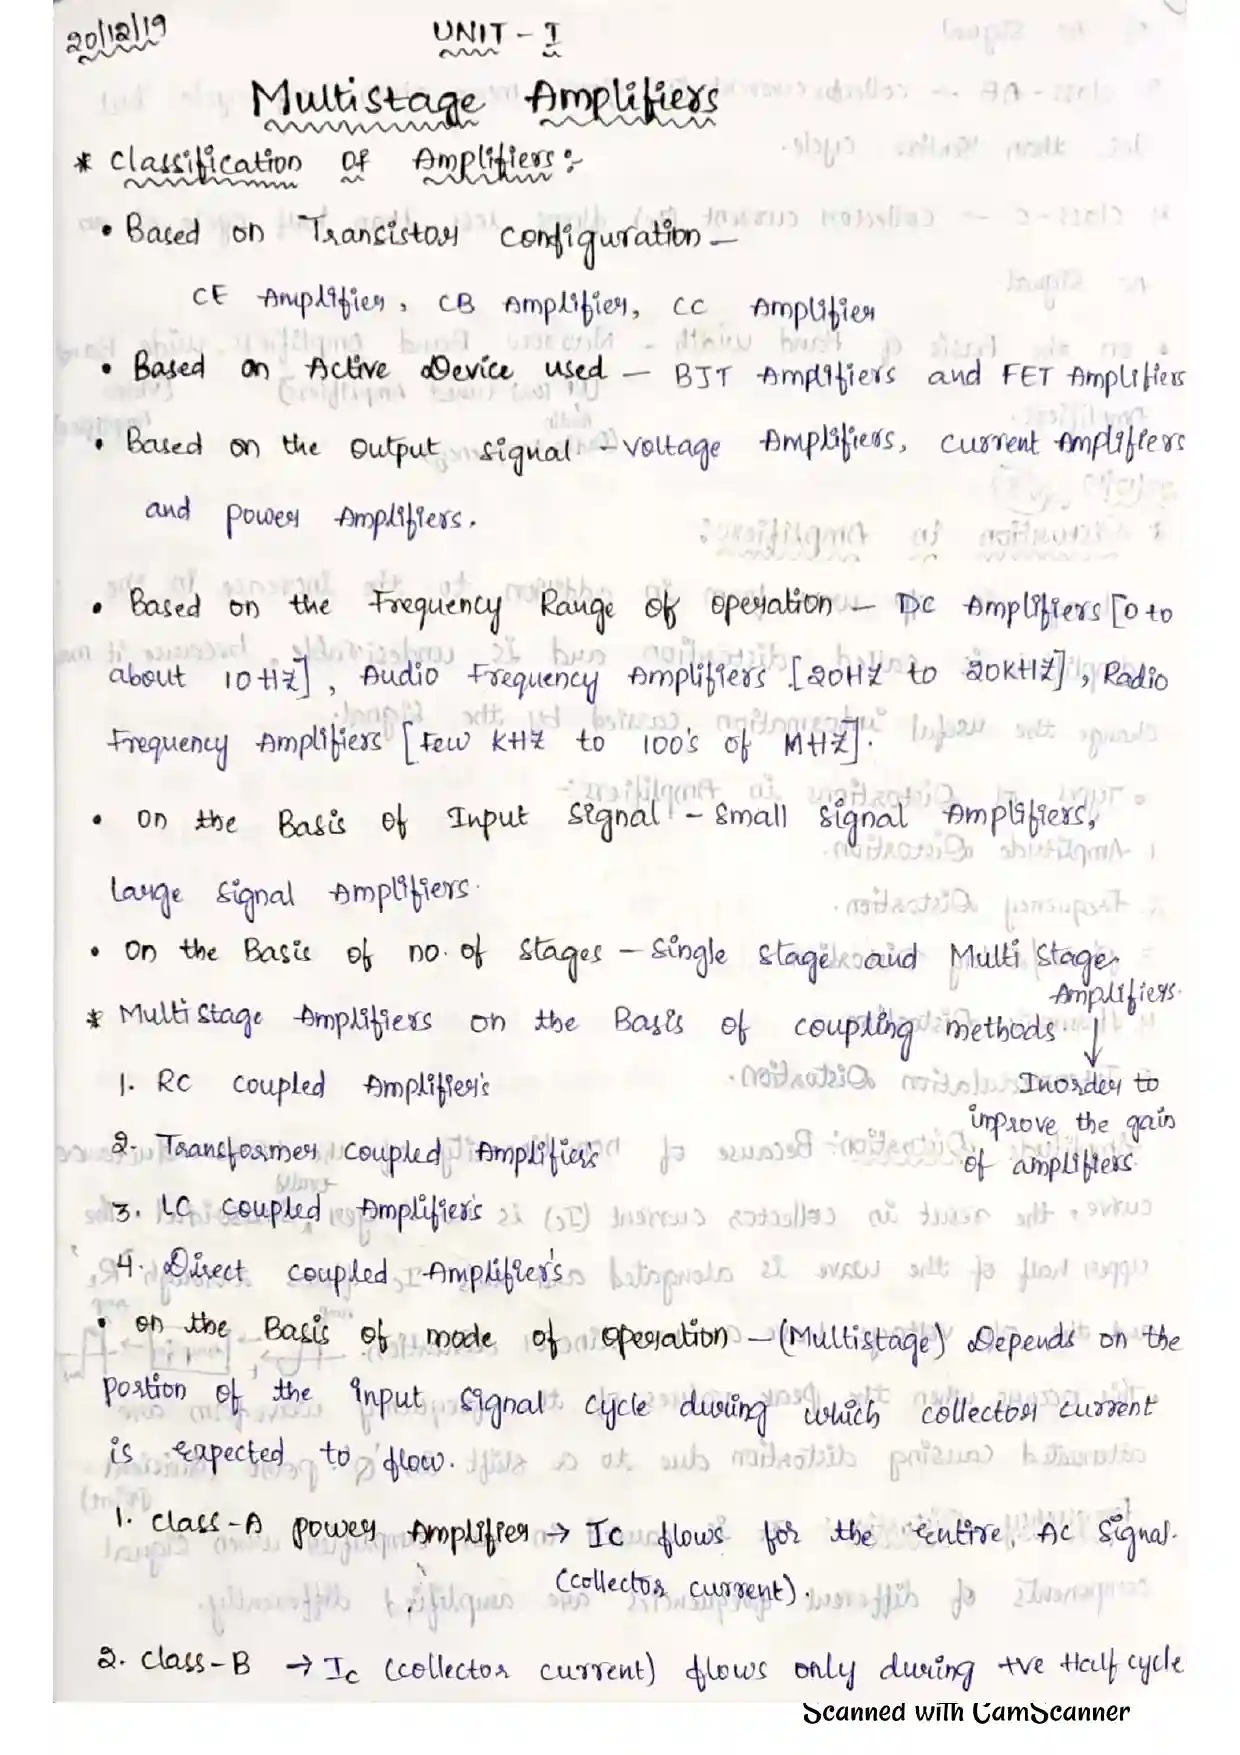 20/12/19 UNIT - I
Multistage Amplifiers
* Classification of Amplifiers :-
• Based on Transistor configuration -
CE Amplifier, CB Amplifier, CC Amplifier
• Based on Active Device used - BJT Amplifiers and FET Amplifiers
• Based on the output signal - voltage Amplifiers, current Amplifiers
and power Amplifiers.
• Based on the Frequency Range of operation - DC Amplifiers [0 to
about 10 HZ], Audio Frequency Amplifiers [20HZ to 20KHZ], Radio
Frequency Amplifiers [Few KHZ to 100's of MHZ].
• On the Basis of Input Signal - Small signal Amplifiers,
large signal Amplifiers.
• On the Basis of no. of stages - Single stage and Multi Stage
Amplifiers.
* Multistage Amplifiers on the Basis of coupling methods. ↓
1. RC coupled Amplifier's
Inorder to
improve the gain
of amplifiers.
2. Transformer coupled Amplifier's
3. LC coupled Amplifier's
4. Direct coupled Amplifier's
• On the Basis of mode of operation - (Multistage) Depends on the
portion of the input signal cycle during which collector current
is expected to flow.
1. class-A power Amplifier → Ic flows for the entire AC signal.
(collector current).
2. class-B → Ic (collector current) flows only during +ve Half cycle
Scanned with CamScanner